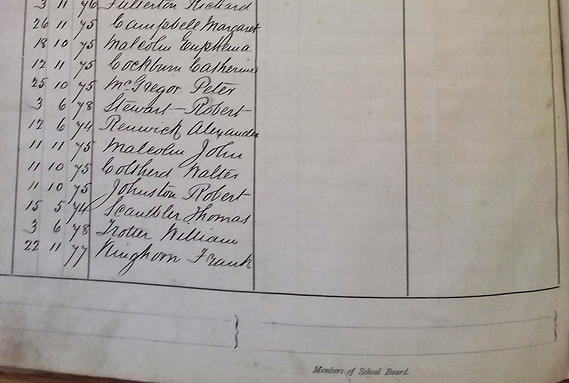 3 11 76 Fullerton Richard
26 11 75 Campbell Margaret
18 10 75 Malcolm Euphemia
12 11 75 Cockburn Catherine
25 10 75 McGregor Peter
3 6 78 Stewart Robert
12 6 74 Renwick Alexander
11 11 75 Malcolm John
11 10 75 Coltherd Walter
11 10 75 Johnston Robert
15 5 74 Thomas
3 6 78 Trotter William
22 11 77 Kinghorn Frank
Members of School Board.